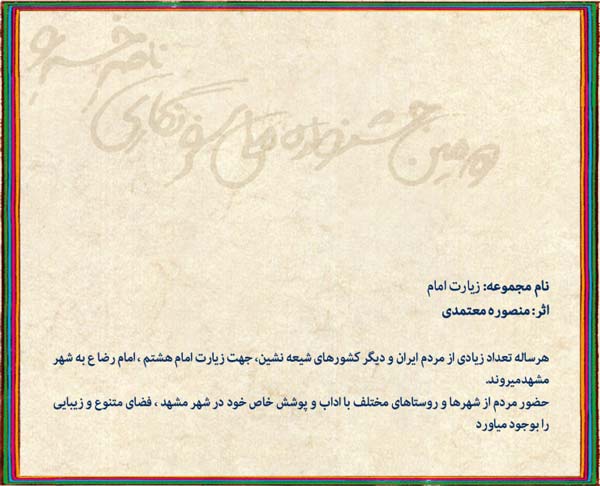 دومین جشنواره ملی سفرنگاری
ناصر خسرو
نام مجموعه: زیارت امام
اثر: منصوره معتمدی
هرساله تعداد زیادی از مردم ایران و دیگر کشورهای شیعه نشین، جهت زیارت امام هشتم ، امام رضا ع به شهر
مشهدمیروند.
حضور مردم از شهرها و روستاهای مختلف با اداب و پوشش خاص خود در شهر مشهد ، فضای متنوع و زیبایی
را بوجود میاورد